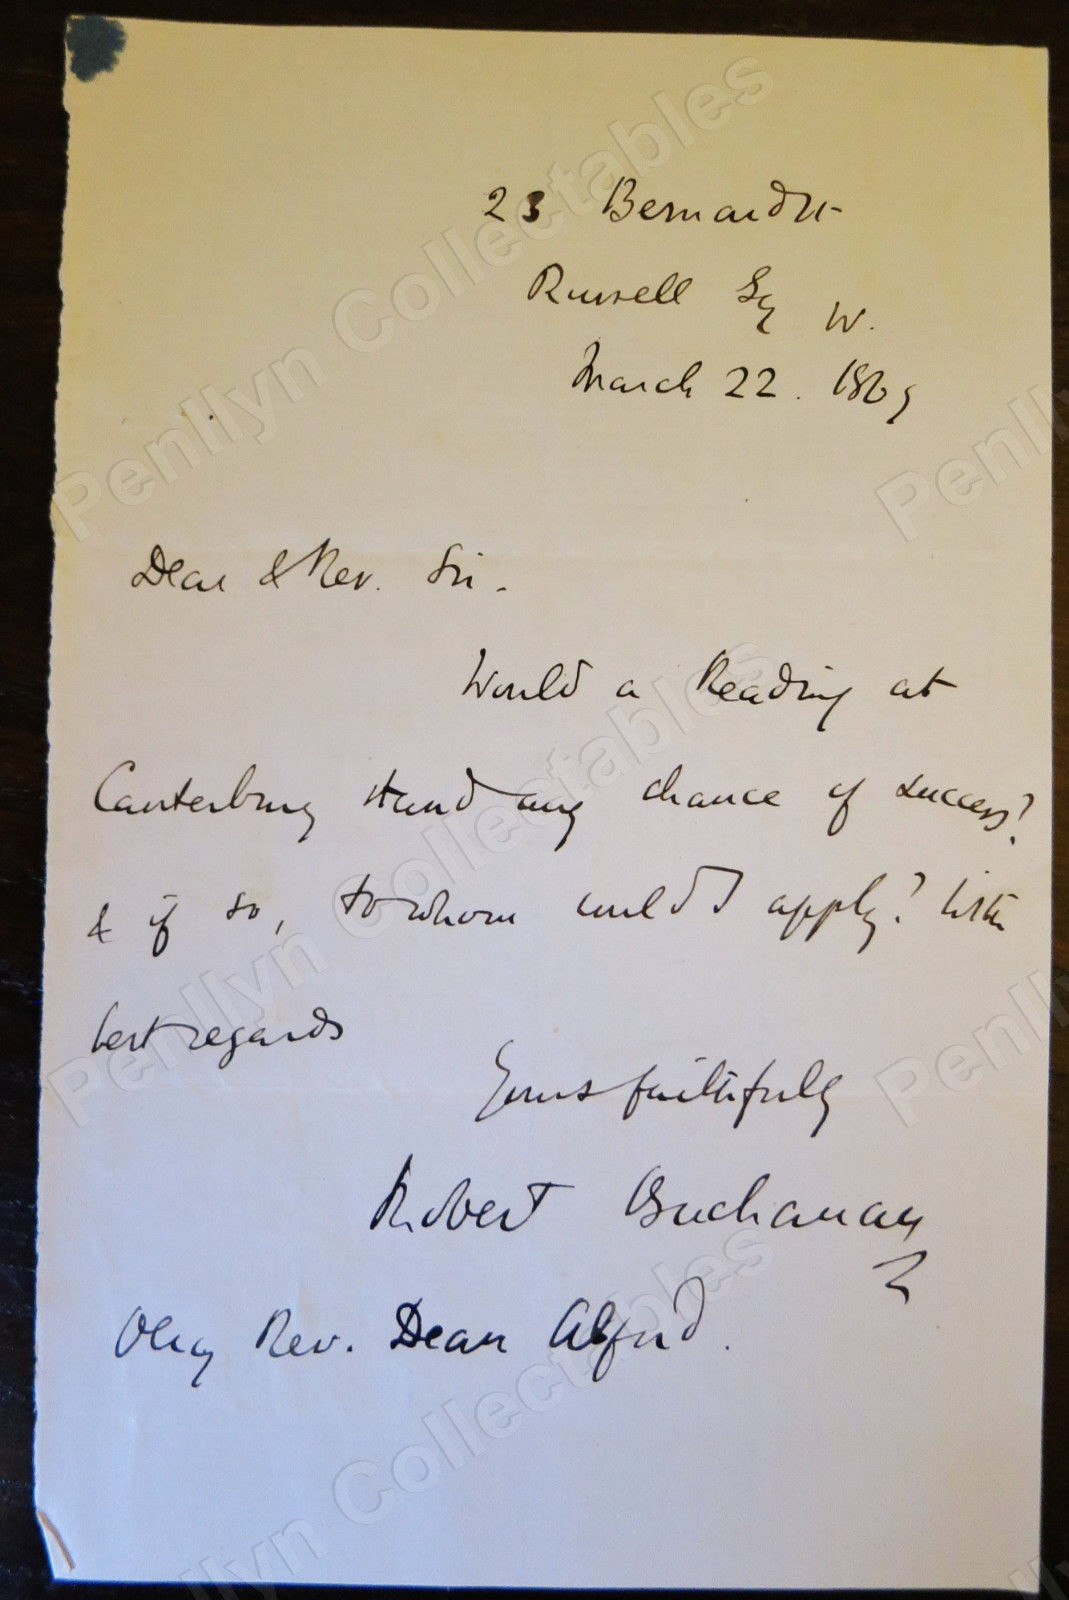 23 Bernard St
Russell Sq W.
March 22. 1869
Dear & Rev. Sir.
Would a Reading at
Canterbury stand any chance of success?
& if so, to whom could I apply? With
best regards
Yours faithfully
Robert Buchanan
Very Rev. Dean Alford.
Penllyn Collectables
Penllyn Collectables
Penllyn Collectables